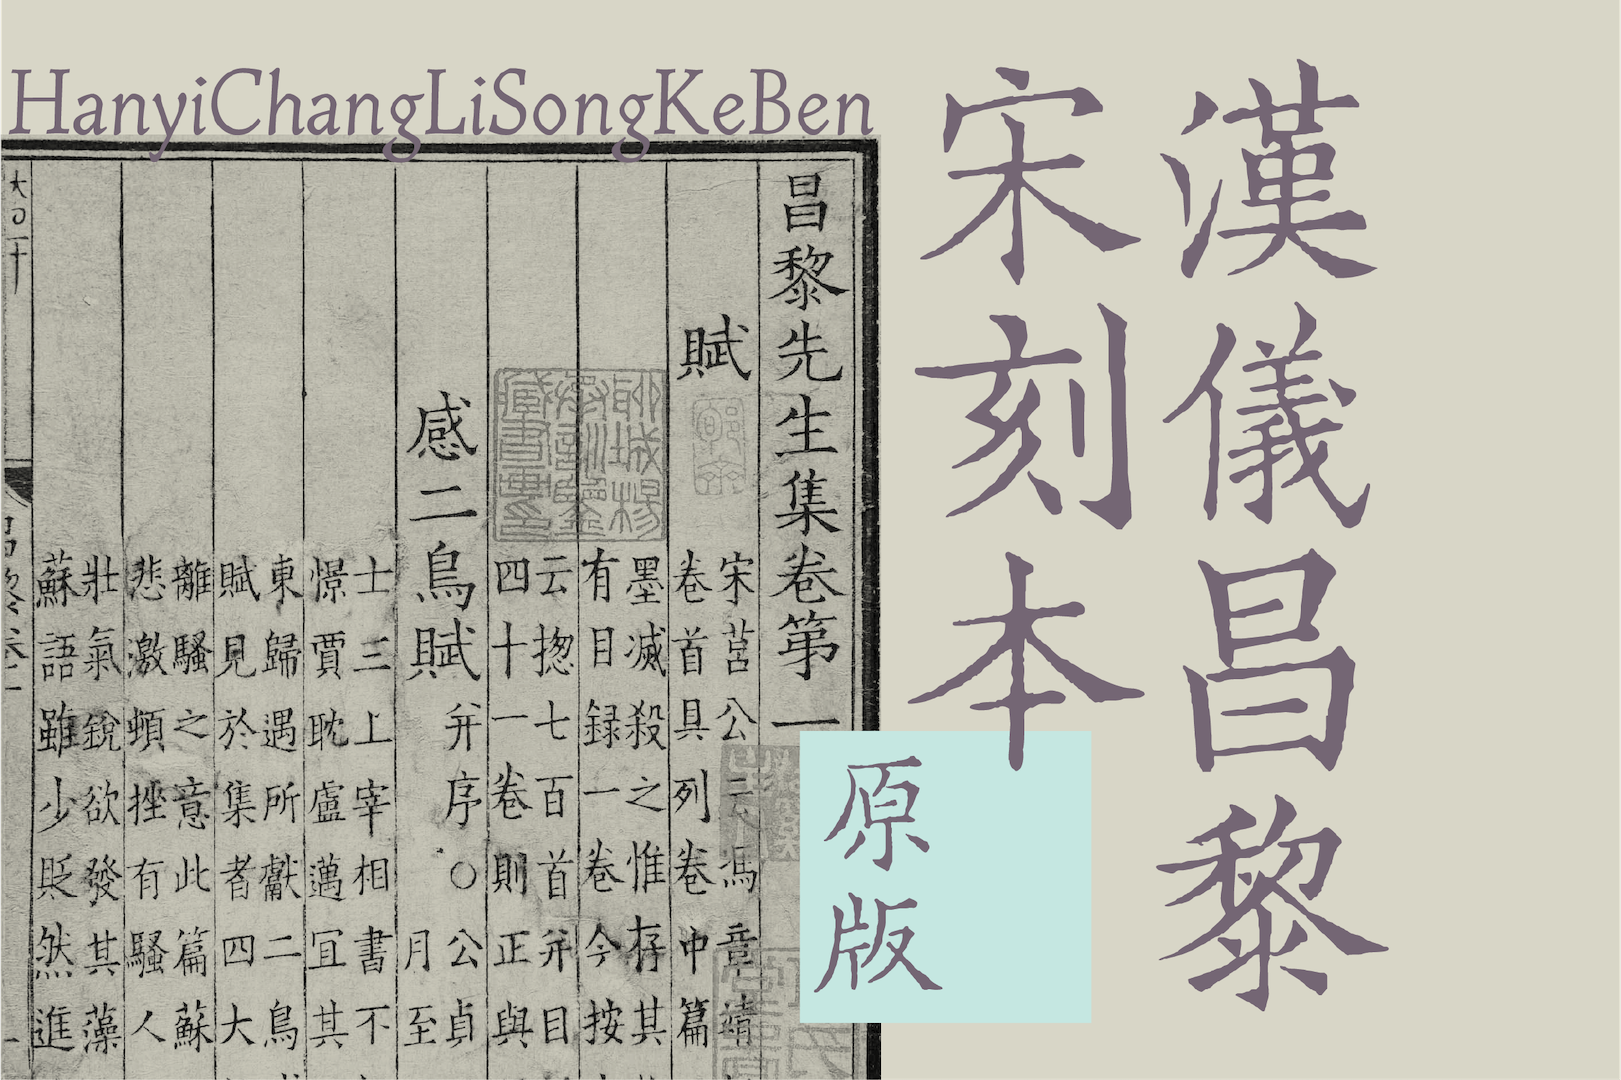 HanyiChangLiSongKeBen
漢儀昌黎
宋刻本
原版
昌黎先生集卷第一
賦
宋莒公云馮章靖
卷首具列卷中篇
墨滅殺之惟存其
有目録一卷今按
云揔七百首并目
四十一卷則正與
感二鳥賦
并序〇公貞
月至
士三上宰相書不
憬賈耽盧邁冝其
東歸遇所獻二鳥
賦見於集者四大
離騷之意此篇蘇
悲激頓挫有騷人
壯氣銳欲發其藻
蘇語雖少貶然進